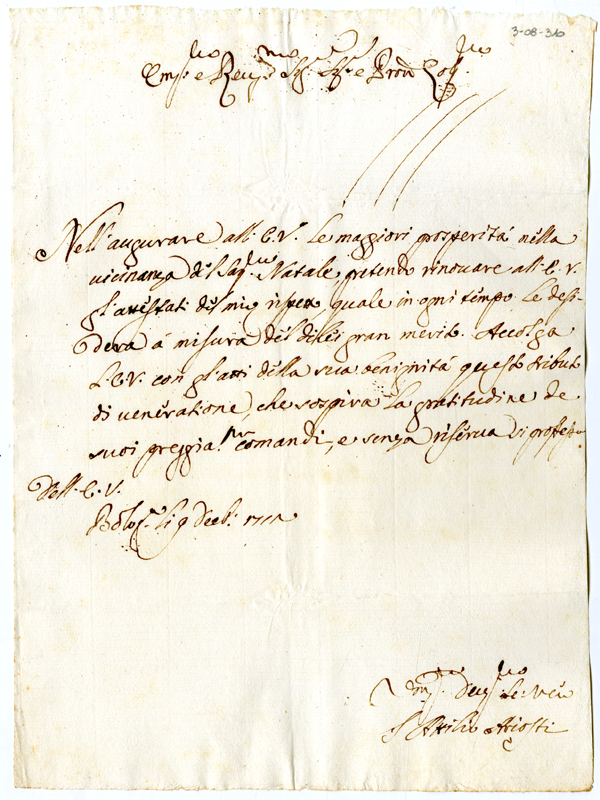 3-08-310
Em.mo e Rev.mo Sig.r Sig.r e Pron Col.mo
Nell'augurare all'E.V. le maggiori prosperità nella
vicinanza del Sag.mo Natale, pretendo rinovare all'E.V.
gl'attestati del mio rispetto, quale in ogni tempo le desi-
dera à misura del di lei gran merito. Accolga
L'E.V. con gl'atti della sua benignità questo tributo
di veneratione, che sospira la gratitudine de
suoi preggia.mi comandi, e senza riserva si
Dell'E.V.
Bolog.a li 9 Decb.
Attilio Ariosti